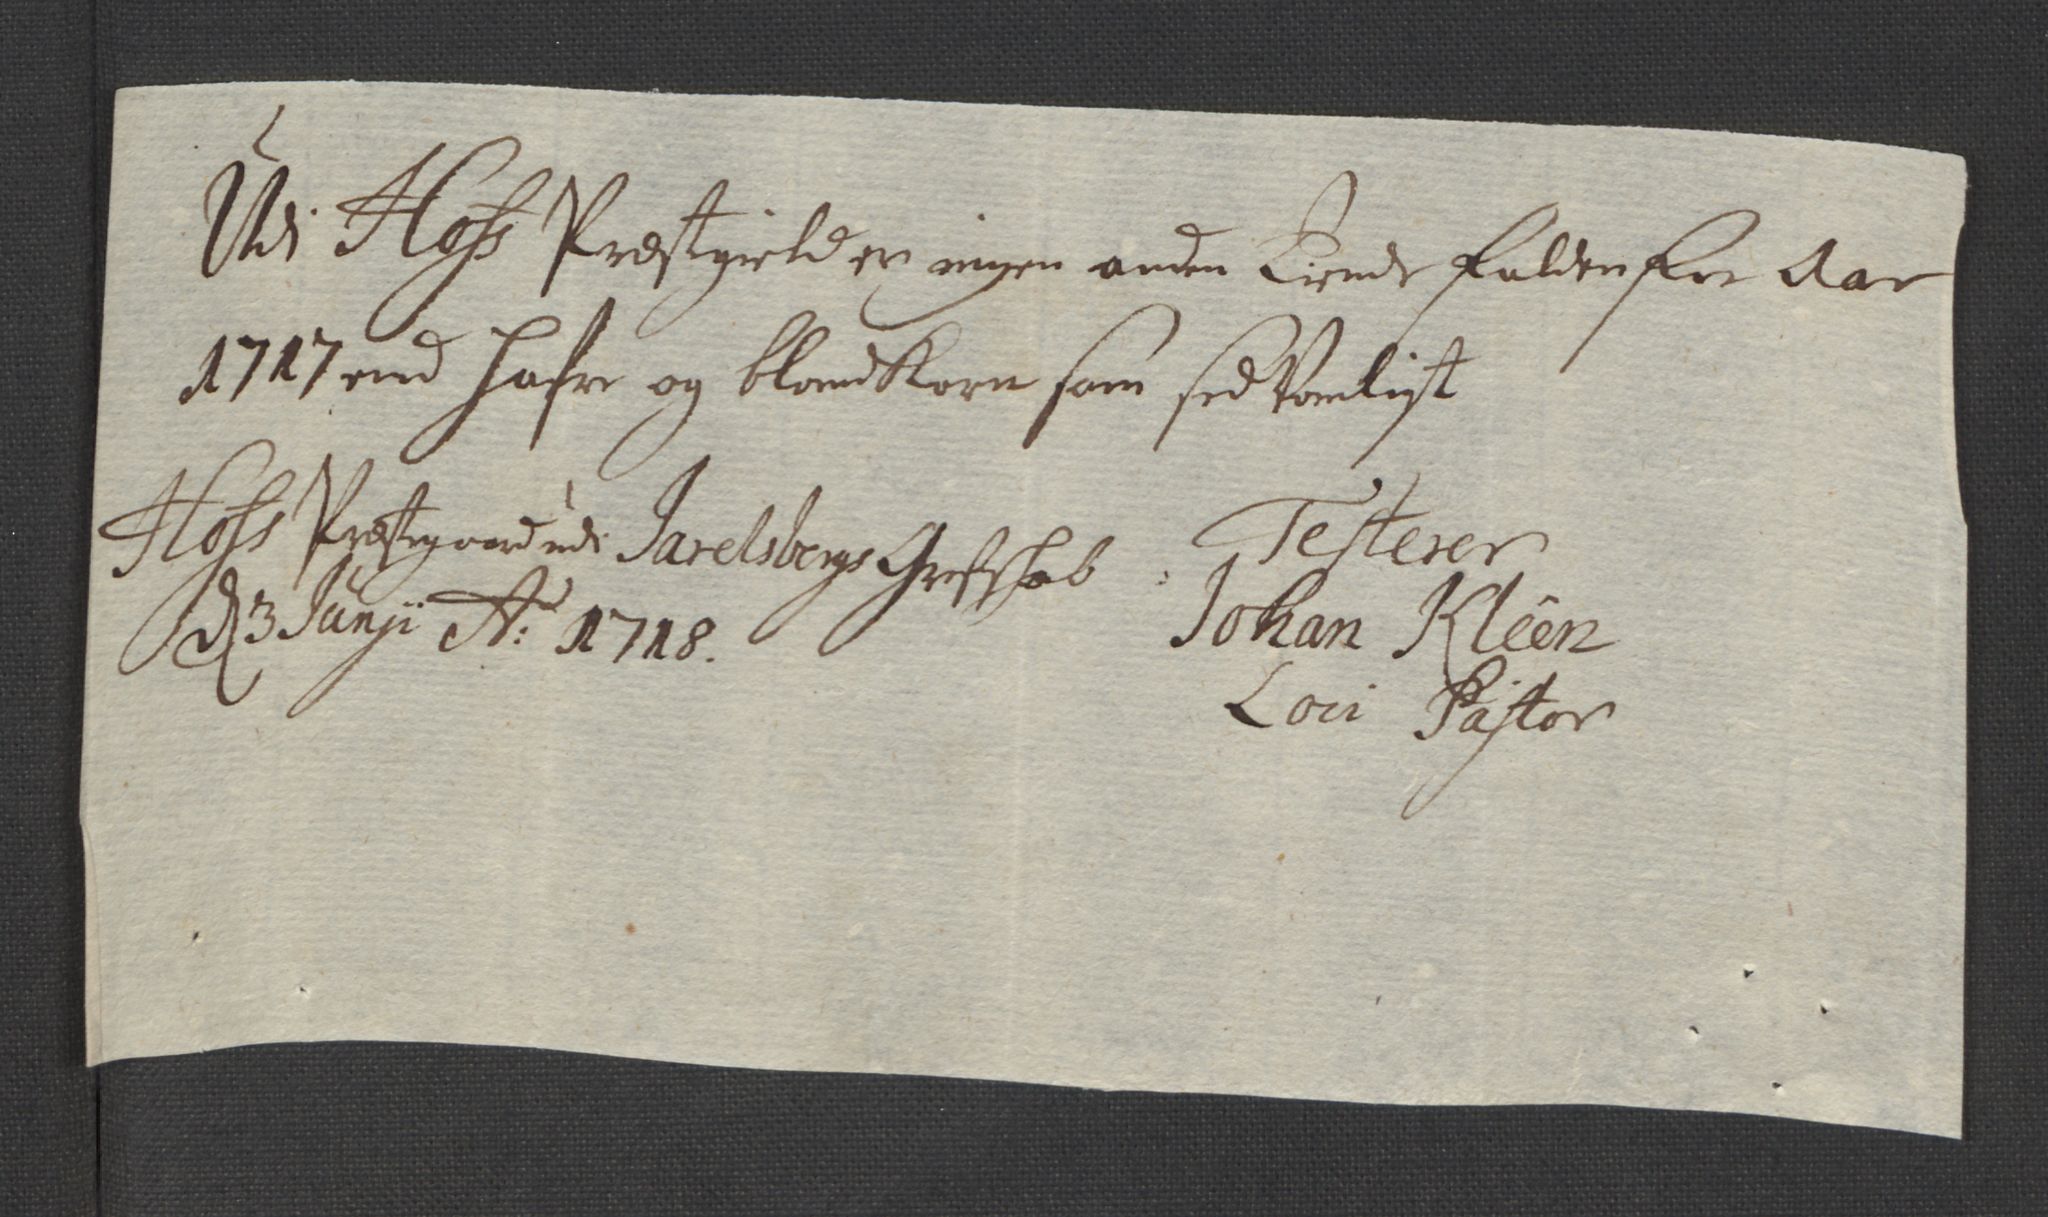 Udi Hofs Præstgield er ingen anden Tiende falden for Aar
1717 end hafre og blandkorn som sedvanligt
Hofs Præstegaard udi Jarelsbergs Grefskab
d 3 Junji Ao: 1718.
Testerer
Johan Kleen
Loci Pastor